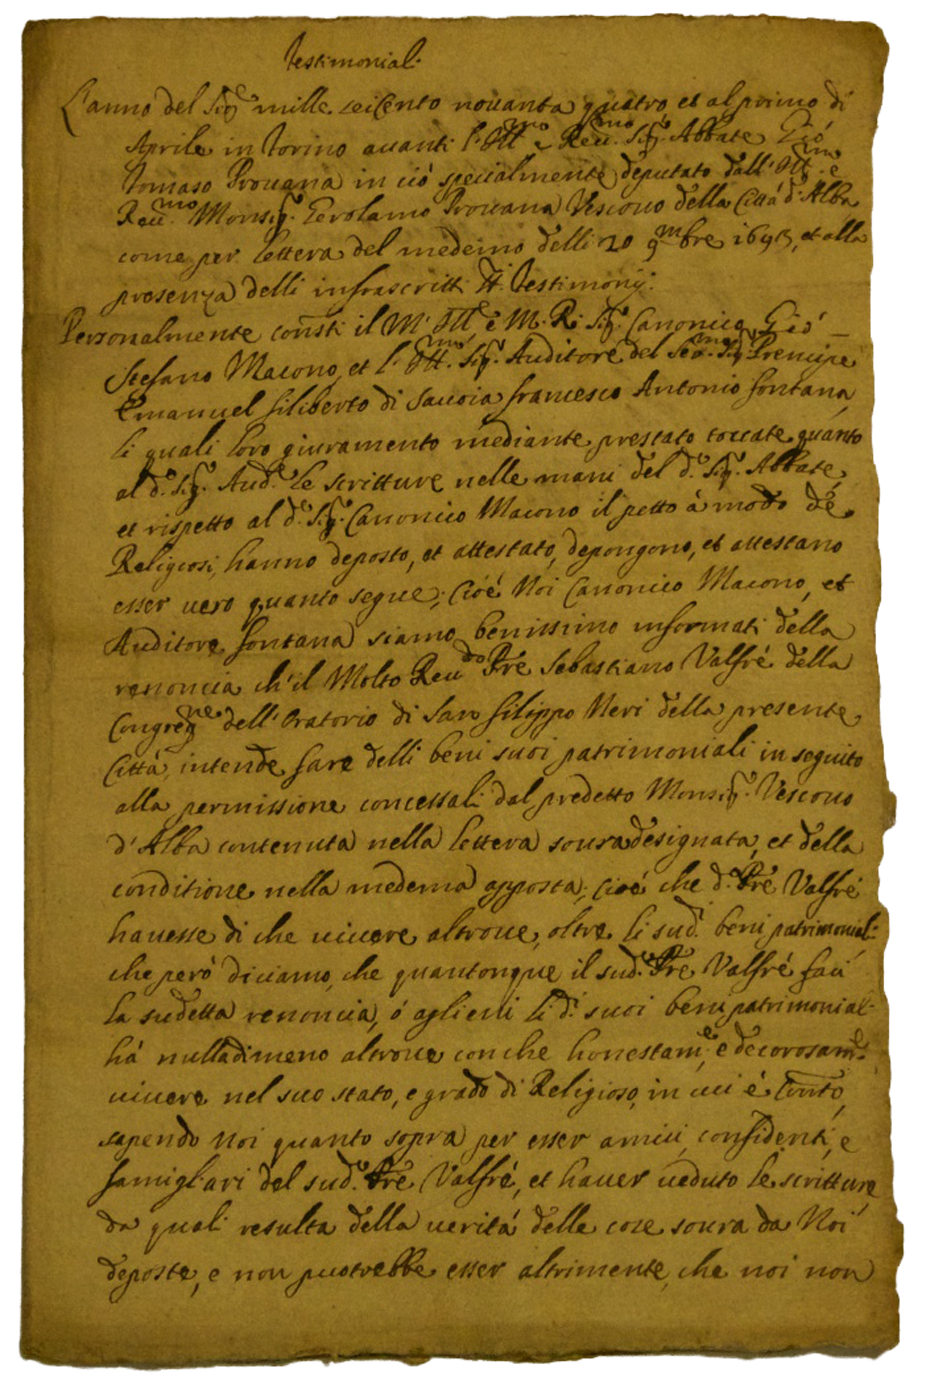 Testimoniali
L'anno del Sig.e mille seicento nouanta quatro et al primo di
Aprile in Torino auanti l'Ill.mo e Reu.mo Sig.r Abbate Gio
Tomaso Prouana in ciò specialmente deputato dall'Ill.mo e
Reu.mo Monsig.r Gerolamo Prouana Vescouo della Città d'Alba
come per lettera del medemo delli 20 9mbre 1693, et alla
presenza delli infrascritti SS.ri Testimonij.
Personalmente const.i il M.to Ill.e e M.R. Sig.r Canonico Gio
Stefano Macono, et l'Ill.mo Sig.r Auditore del Ser.mo Sig.r Prencipe
Emanuel filiberto di Sauoia francesco Antonio fontana,
li quali loro giuramento mediante prestato toccate quanto
al d.o Sig.r Aud.e le scritture nelle mani del d.o Sig.r Abbate,
et rispetto al d.o Sig.r Canonico Macono il petto à modo de
Religiosi, hanno deposto, et attestato, depongono, et attestano
esser uero quanto segue, Cioè Noi Canonico Macono, et
Auditore fontana siamo benissimo informati della
renoncia ch'il Molto Reu.do Pre Sebastiano Valfré della
Congreg.ne dell'Oratorio di San filippo Neri della presente
Città, intende fare delli beni suoi patrimoniali in seguito
alla permissione concessali dal predetto Monsig.r Vescouo
d'Alba contenuta nella lettera souradesignata, et della
conditione nella medema apposta, cioè che d.o Pre Valfré
hauesse di che uiuere altroue, oltre li sud.i beni patrimoniali
che però diciamo, che quantonque il sud.o Pre Valfré facci
la sudetta renoncia, ò aglieni li d.i suoi beni patrimoniali
hà nulladimeno altroue con che honestam.e, e decorosam.e
uiuere nel suo stato, e grado di Religioso, in cui è Const.o,
sapendo Noi quanto sopra per esser amici, confidenti, e
famigliari del sud.o Pre Valfré, et hauer ueduto le scritture,
da quali resulta della uerità delle cose soura da Noi
deposte, e non puotrebbe esser altrimente, che noi non